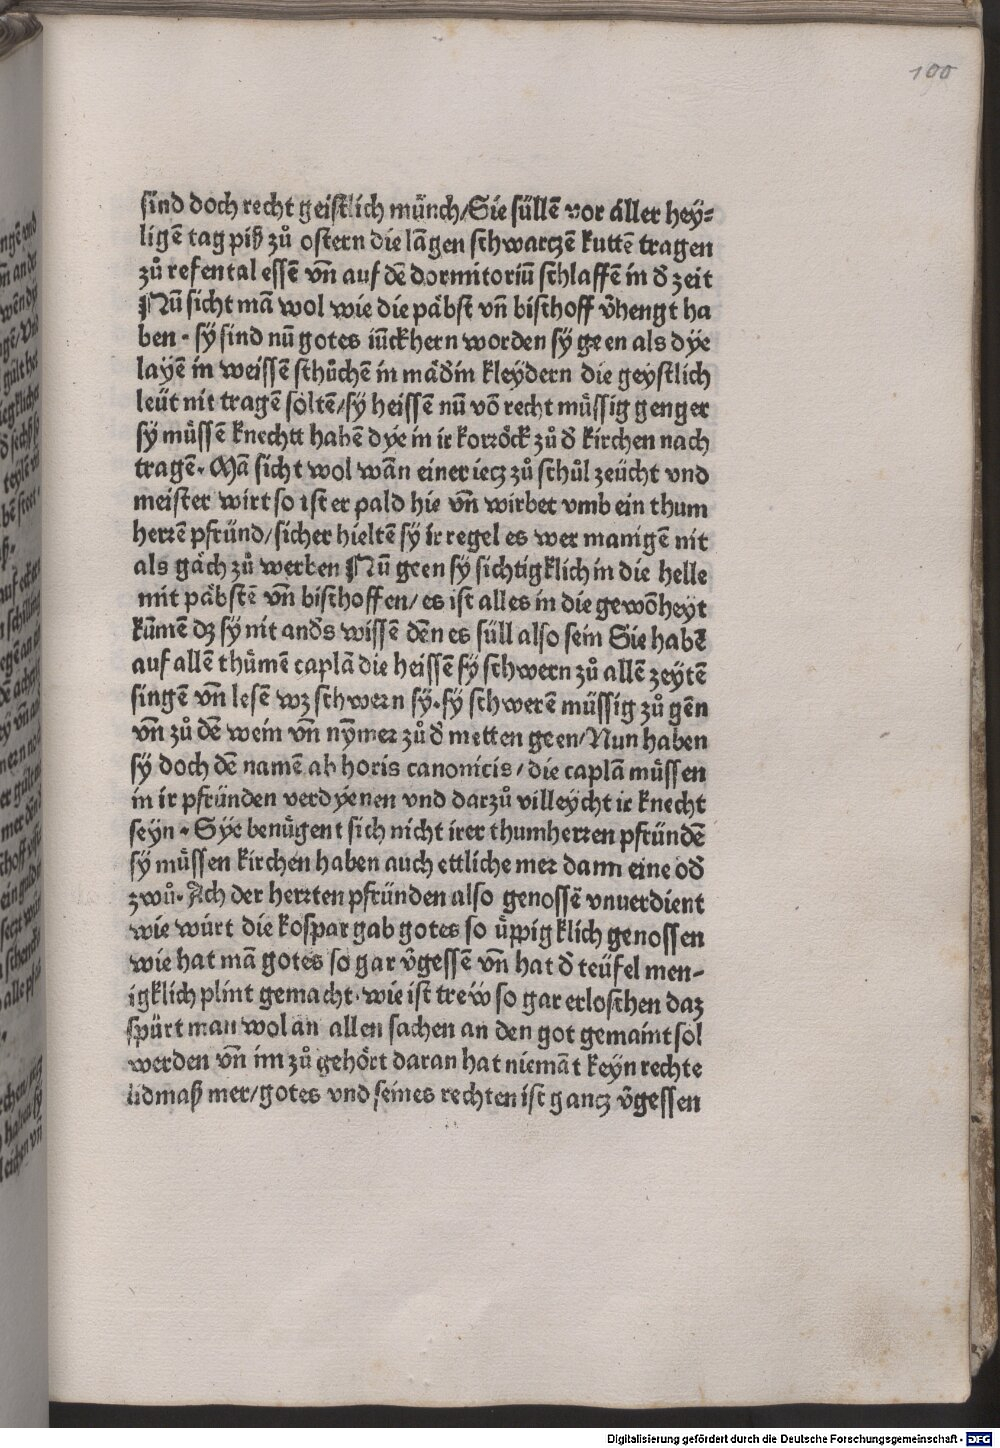 100
sind doch recht geistlich münch/Sie süllē vor aller hey=
ligē tag piß zů ostern die lāgen schwarczē kuttē tragen
zů refental essē vn̄ auf dē dormitoriū schlaffē in d̄ zeit
Nū sicht mā wol wie die päbst vn̄ bischoff v̄hengt ha
ben . sÿ sind nū gotes iūckhern worden sÿ geen als dye
layē in weissē schůchē in mädin kleydern die geystlich
leüt nit tragē soltē/sÿ heissē nū vō recht müssig genger
sÿ müssē knechtt habē dÿe in ir korröck zů d̄ kirchen nach
tragē. Mā sicht wol wān einer iecz zů schůl zeücht vnd
meister wirt so ist er pald hie vn̄ wirbet vmb ein thum
herrē pfründ/sicher hieltē sÿ ir regel es wer manigē nit
als gäch zů werben Nū geen sÿ sichtigklich in die helle
mit päbstē vn̄ bischoffen/es ist alles in die gewōheyt
kūmē dz sÿ nit and̄s wissē dēn es süll also sein Sie habē
auf allē thümen caplā die heissē sÿ schwern zů allē zeytē
singē vn̄ lesē wz schwern sÿ.sÿ schwerē müssig zů gēn
vn̄ zů dē wein vn̄ nȳmer zů d̄ metten geen/Nun haben
sÿ doch dē namē ab horis canonicis/die caplā müssen
in ir pfründen verdÿenen vnd darzů villeycht ir knecht
seyn . Sÿe benügent sich nicht irer thumherren pfründē
sÿ müssen kirchen haben auch ettliche mer dann eine od̄
zwů. Ach der herrten pfründen also genossē vnuerdient
wie würt die kospar gab gotes so üppigklich genossen
wie hat mā gotes so gar v̄gessē vn̄ hat d̄ teüfel men-
igklich plint gemacht.wie ist treẅ so gar erloschen daz
spürt man wol an allen sachen an den got gemaint sol
werden vn̄ im zů gehört daran hat niemāt keyn rechte
lidmaß mer/gotes vnd seines rechten ist gancz v̄gessen
Digitalisierung gefördert durch die Deutsche Forschungsgemeinschaft - DFG